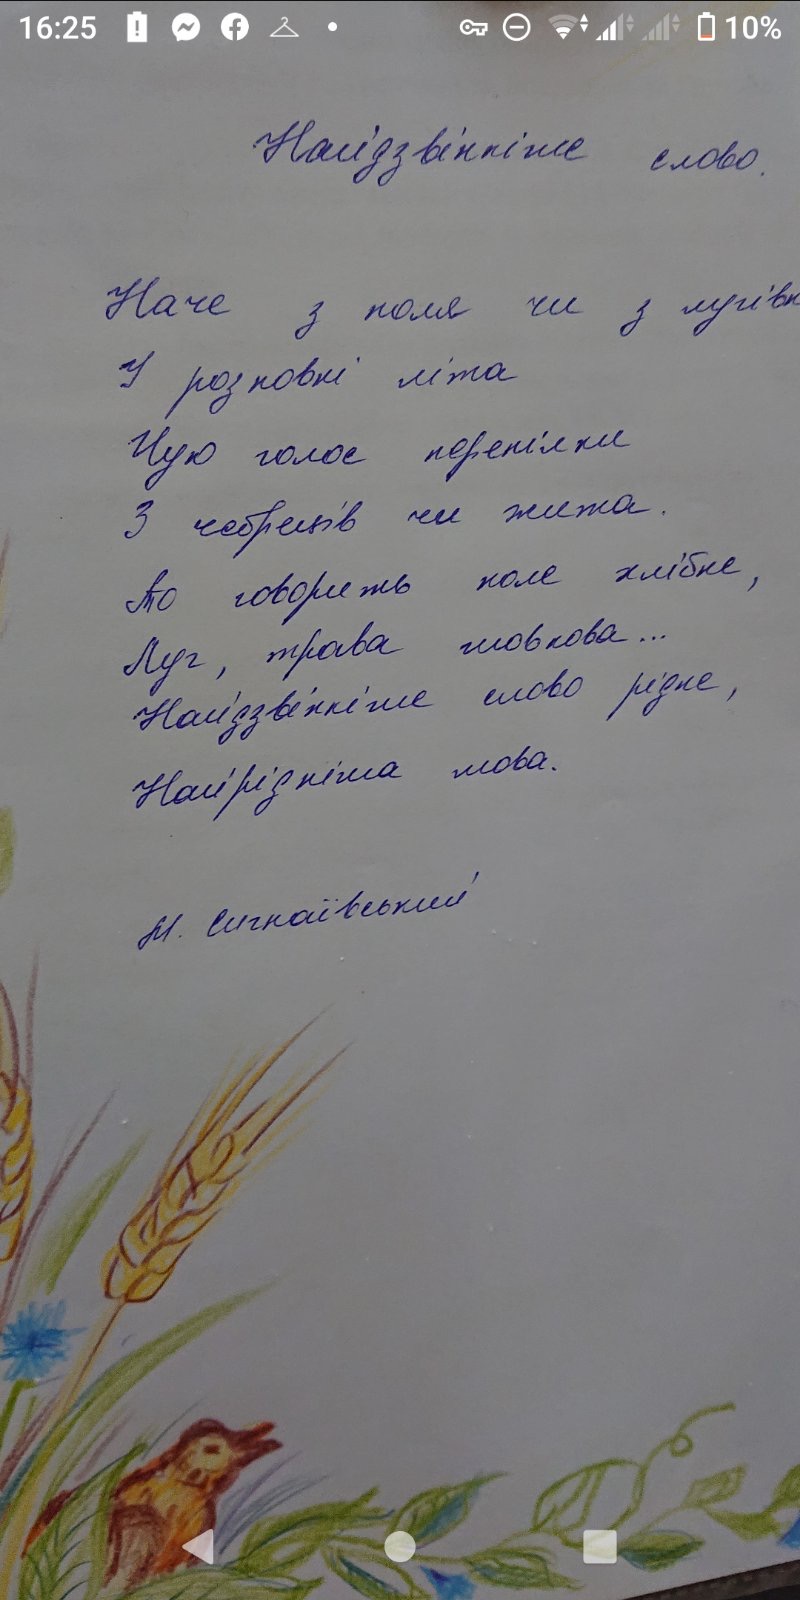 16:25 10%
Найдзвінкіше слово.
Наче з поля чи з
У розповні літа
Чую голос перепілки
З чебреців чи жита.
То говорить поле хлібне,
Луг, трава шовкова...
Найдзвінкіше слово рідне,
Найрідніша мова.
М. Сингаївський